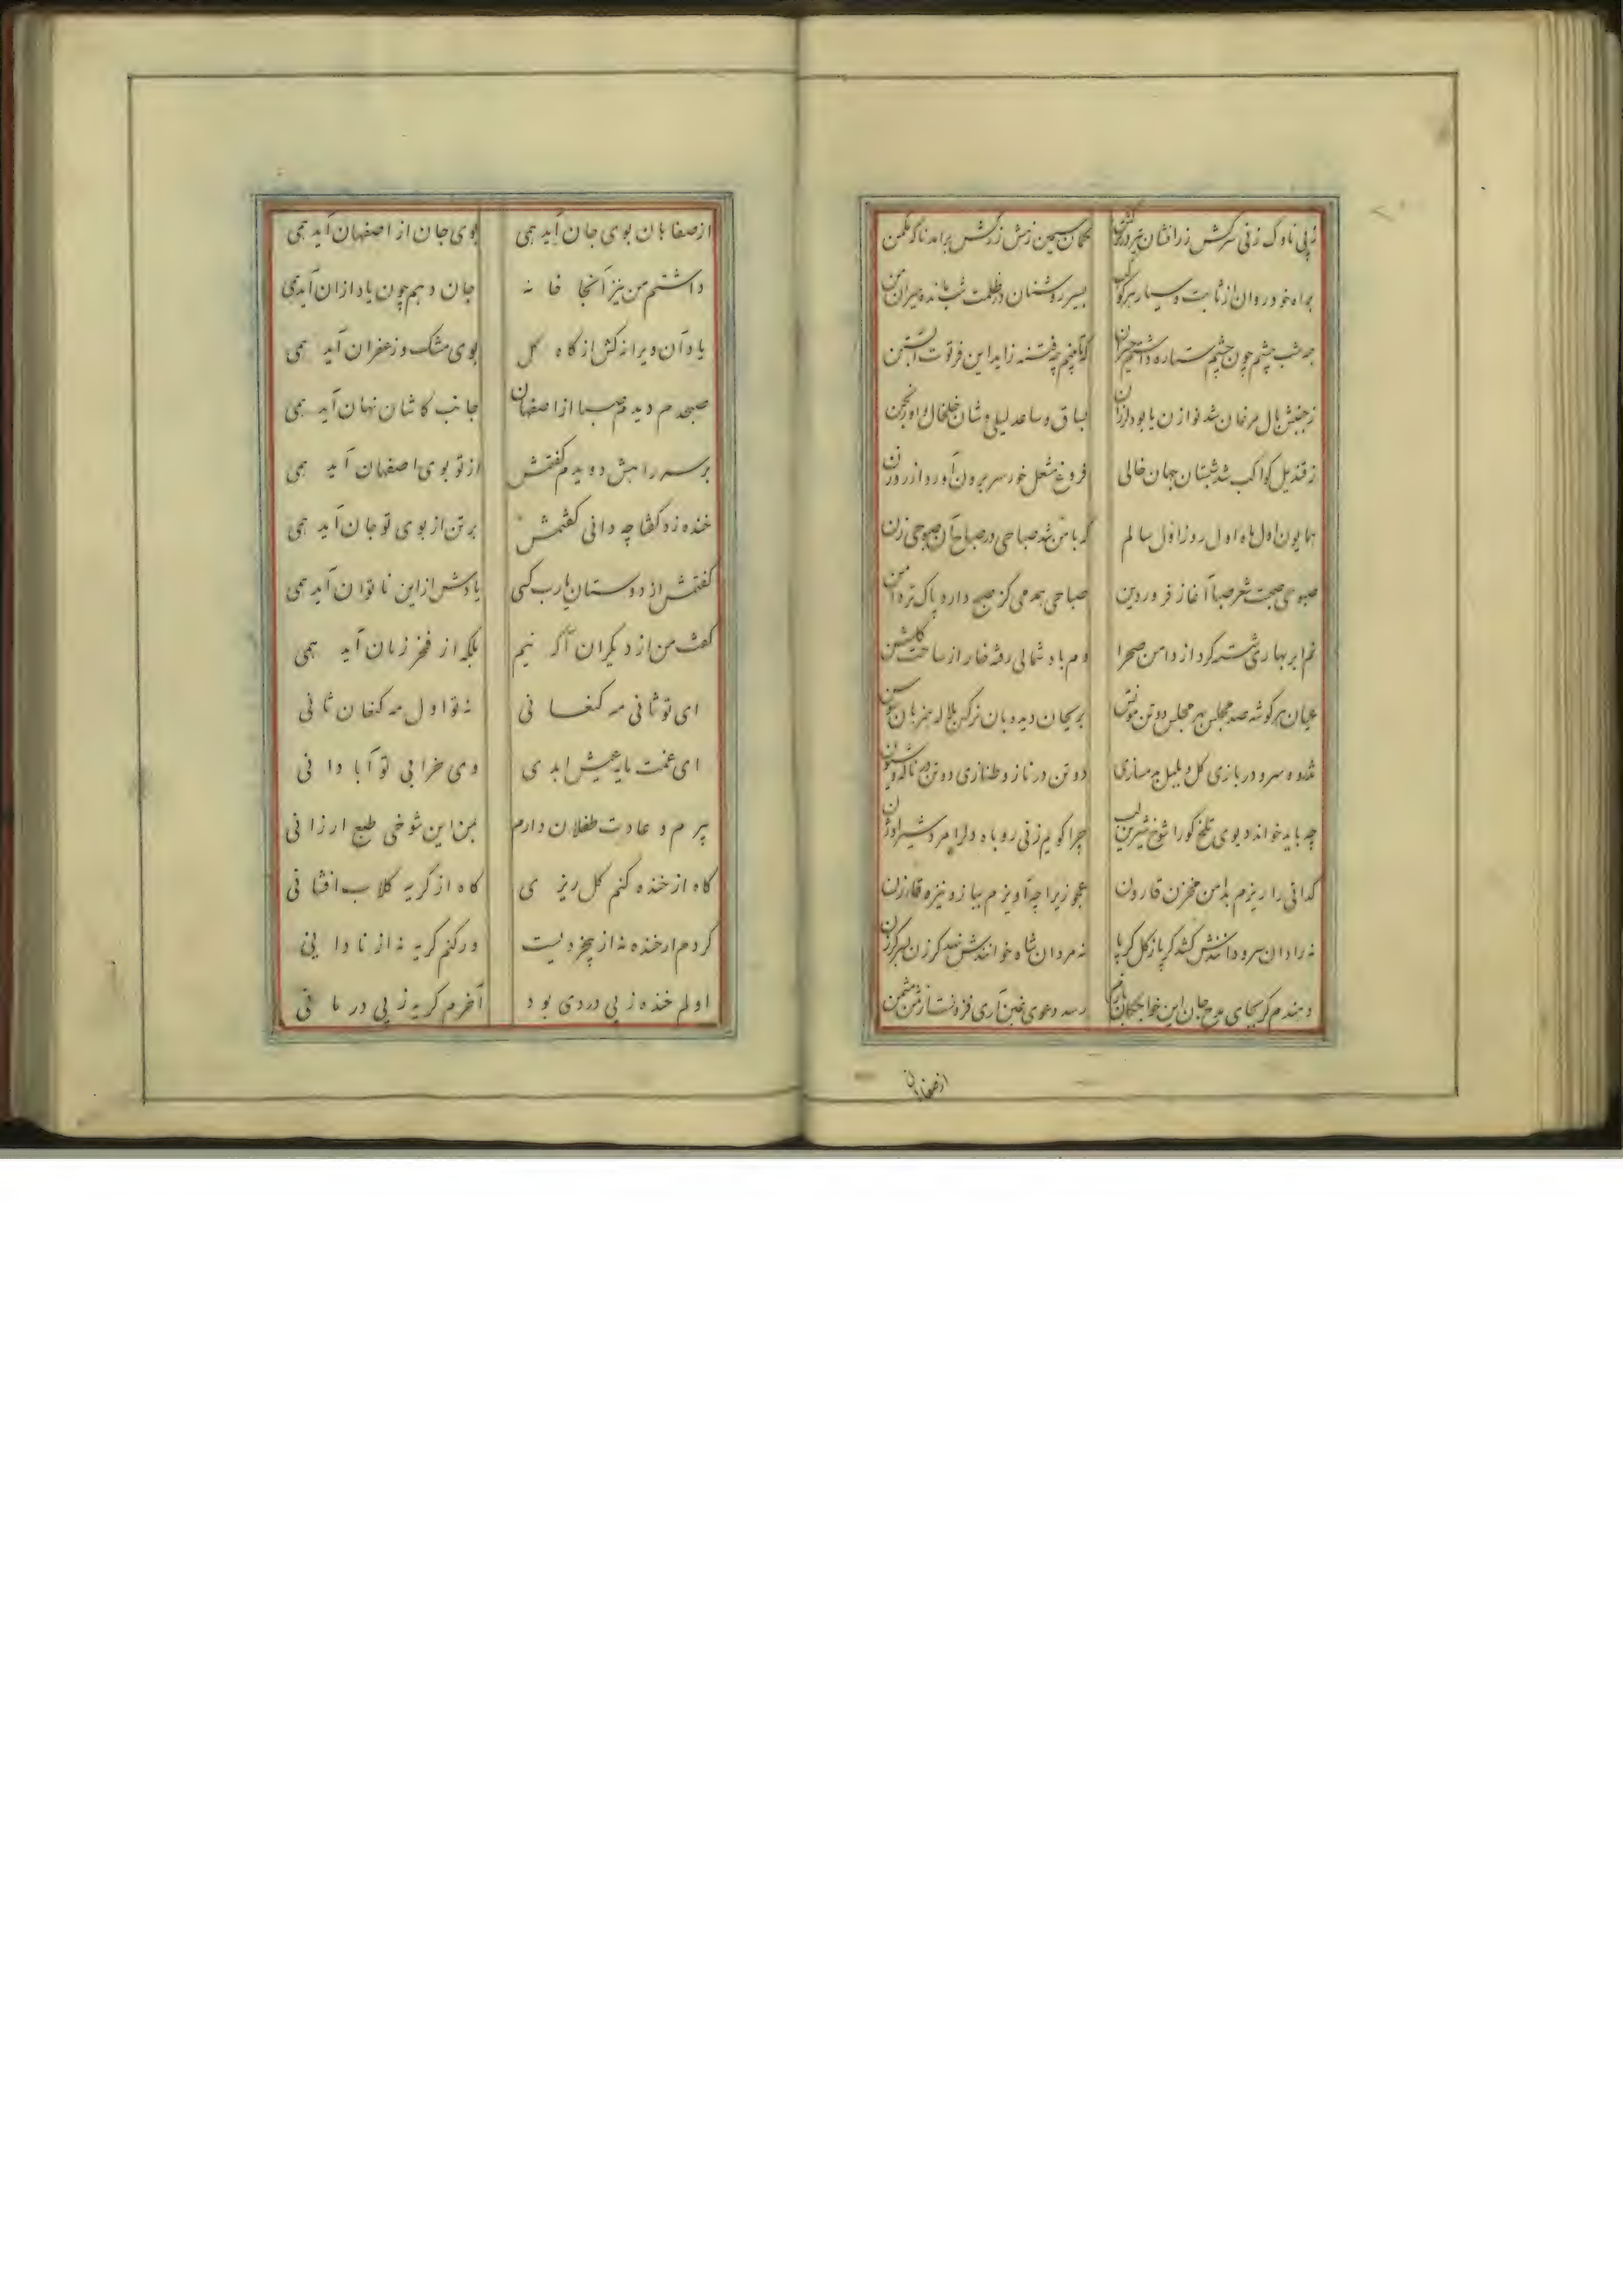 ز پی ناوک زنی سرکش زرافشان تیر در ترکش کمان سیمین زهش زرکش برآمد ناگه از مکمن
براه خود روان از ثابت و سیار هر کوکب بسیر روشنان در ظلمت شب مانده حیران من
همه شب چشم چون چشم ستاره داشتم حیران که تا بینم چه فتنه زاید این فرتوت آبستن
ز جنبش بال مرغان شد نوازن یا بود ارزان بساق و ساعد لیلی وشان خلخال و اورنجن
ز قندیل کواکب شد شبستان جهان خالی فروغ مشعل خور سر برون آورد از روزن
همایون اول ماه اول روز اول سالم که با من شد صباحی در صباح آن صبوحی زن
صبوحی صحبت شعر صبا آغاز فروردین صباحی همدمی کز صبح دارد پاک تر دامن
نم ابر بهاری شسته گرد از دامن صحرا دم باد شمالی رفته خار از ساحت گلشن
عیان هر گوشه صد مجلس بهر مجلس دو تن مونس بریحان دیده بان نرگس بلاله همزبان سوسن
شده سرو در بازی گل و بلبل بدمسازی دو تن در ناز و طنازی دو تن در ناله و شیون
چه باید خواند دیوی تلخ گو را شوخ شیرین لب چرا گویم زنی روباه دل را مرد شیر اوژن
گدائی را ریزم بدامن مخزن قارون عجوزیرا چه آویزم ببازو نیزه قارن
نه رادان سرو دانندش کشد گر پا ز گل گر پا نه مردان شاه خوانندش نهد گرزن بسر گرزن
دهندم گر بجای مدح جان این خواجگان رسد دعوی غبن آری فزونست از ثمن مثمن
از صفاهان
از صفاهان بوی جان آید همی بوی جان از اصفهان آید همی
داشتم من نیز آنجا خانه جان دهم چون یاد ازان آید همی
یاد آن ویرانه کش از کاه گل بوی مشک و زعفران آید همی
صبحدم دیدم صبا از اصفهان جانب کاشان نهان آید همی
بر سر راهش دویدم گفتمش از تو بوی اصفهان آید همی
خنده زد گفتا چه دانی گفتمش بر تن از بوی تو جان آید همی
گفتمش از دوستان یارب کسی یادش از این ناتوان آید همی
گفت من از دیگران آگه نیم بلکه از فخر زمان آید همی
ای تو ثانی مه کنعانی نه تو اول مه کنعان ثانی
ای غمت مایه عیش ابدی وی خرابی تو آبادانی
پیرم و عادت طفلان دارم بمن این شوخی طبع ارزانی
گاه از خنده کنم گل ریزی گاه از گریه گلاب افشانی
کردم ار خنده نه از بیخردیست ور کنم گریه نه از نادانی
اولم خنده ز بی دردی بود آخرم گریه ز بی درمانی